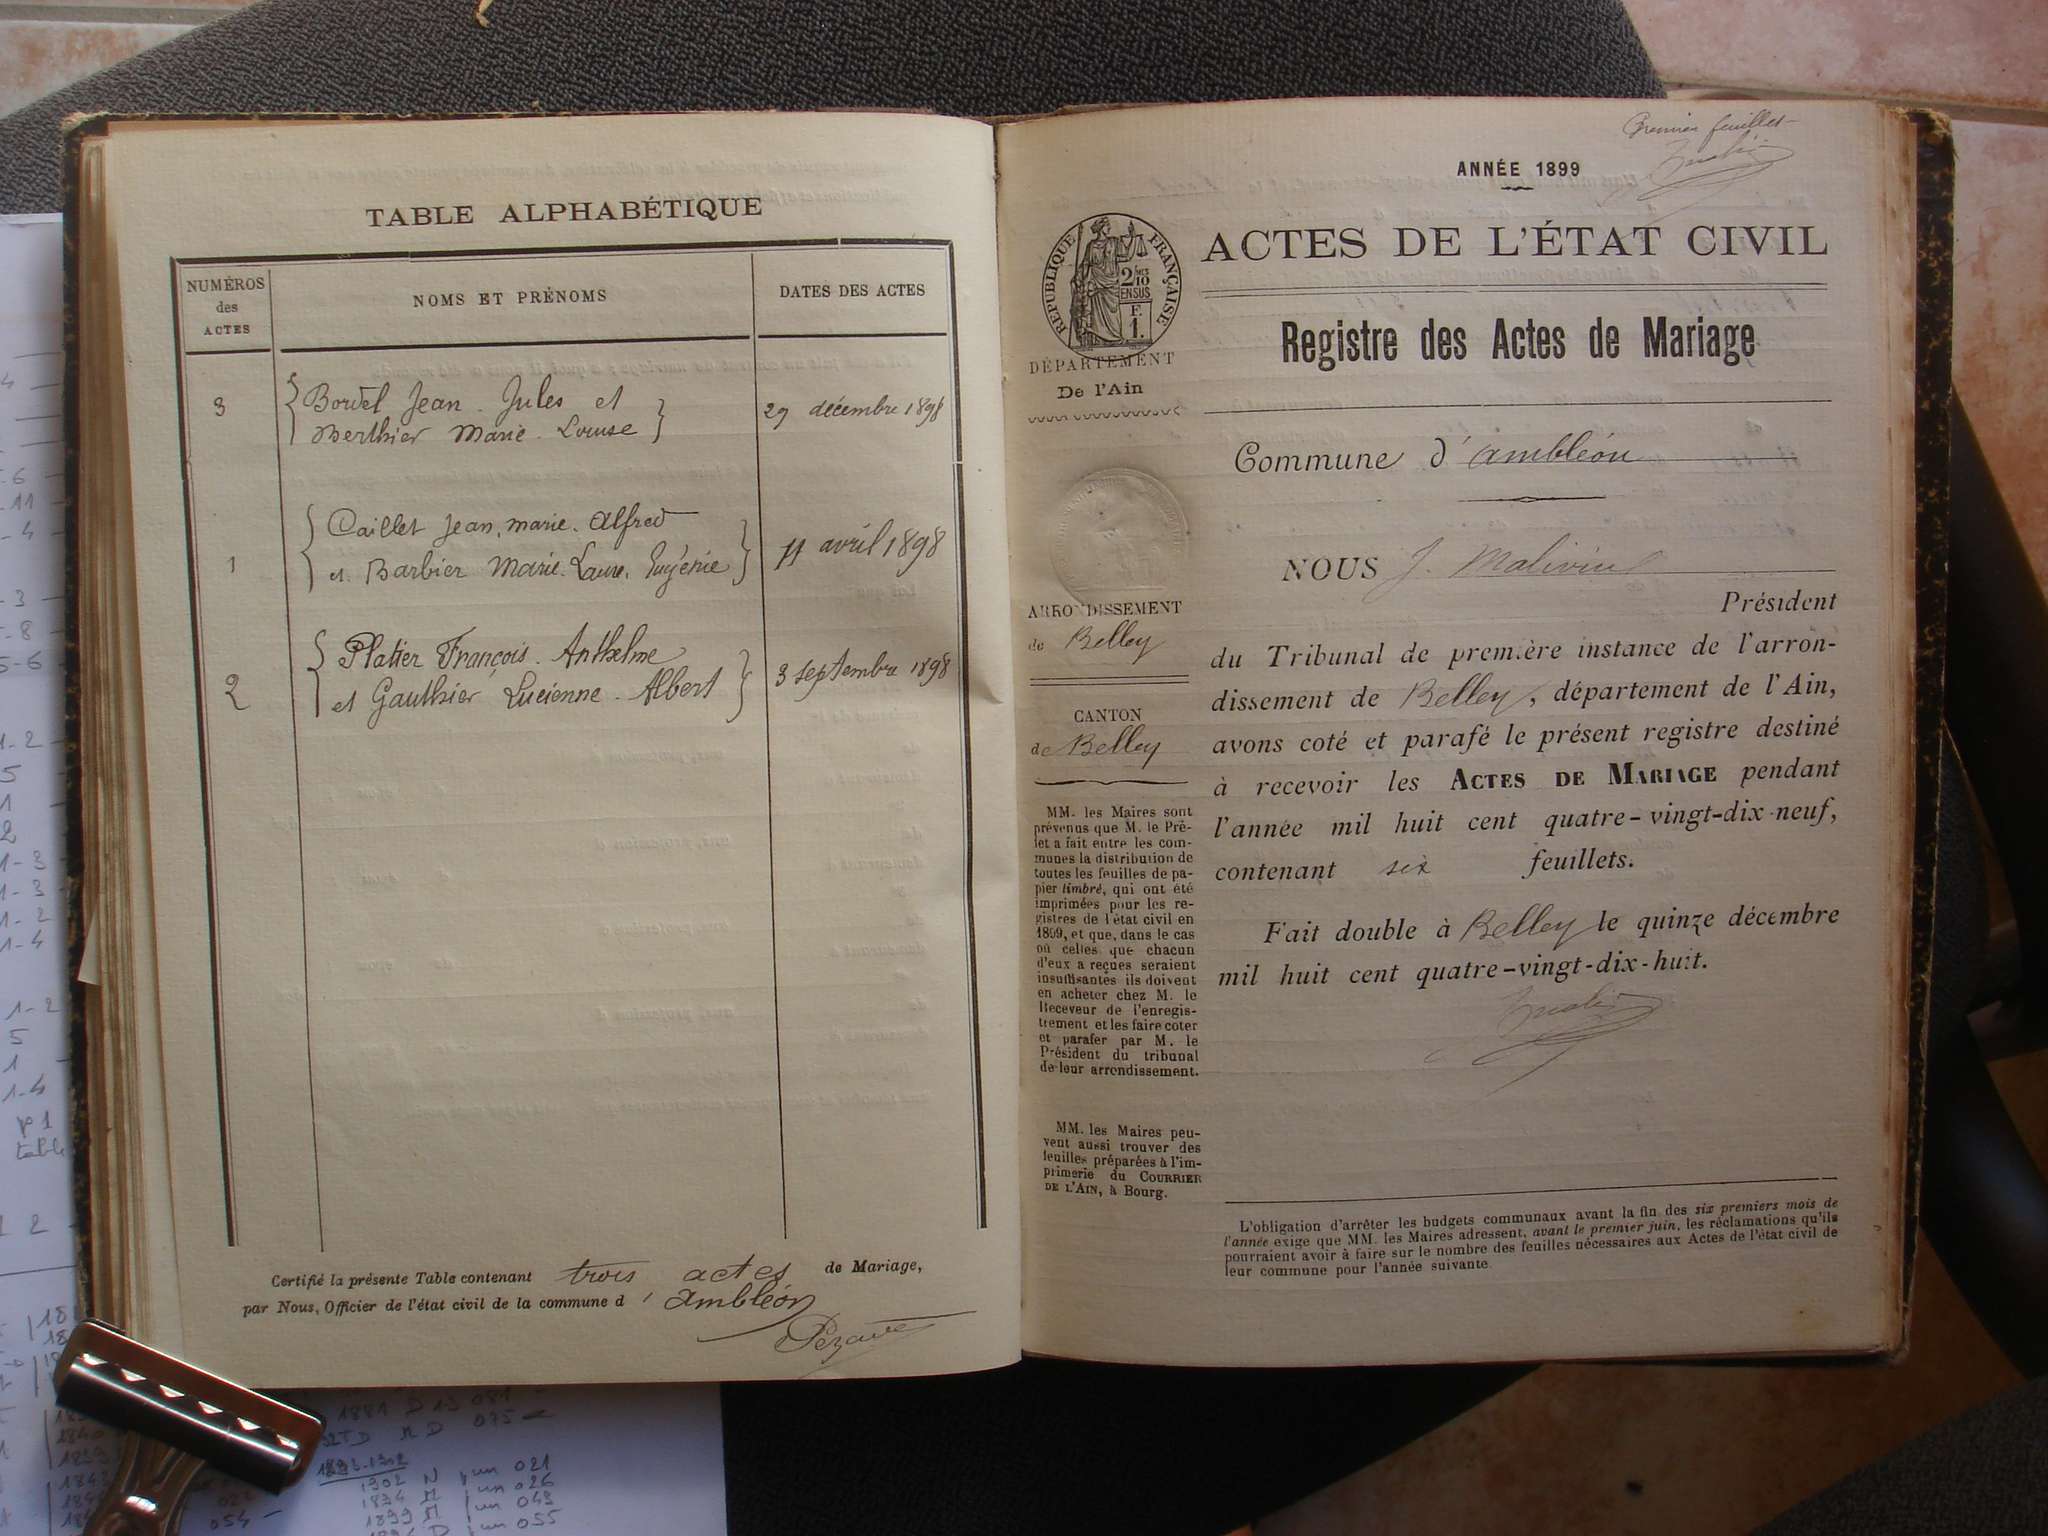 TABLE ALPHABÉTIQUE
NUMÉROS
des
ACTES
NOMS ET PRÉNOMS
DATES DES ACTES
3
Borvel Jean. Jules et
Berthier Marie. Louise
29 décembre 1898
1
Caillet Jean, marie. Alfred
et. Barbier Marie. Laure, Eugénie
11 avril 1898
2
Platier François. Anthelme
et Gauthier Lucienne. Albert
3 septembre 1898
Certifié la présente Table contenant trois actes de Mariage,
par Nous, Officier de l'état civil de la commune d' Ambléon
Premier feuillet
ANNÉE 1899
ACTES DE L'ÉTAT CIVIL
RÉPUBLIQUE FRANÇAISE
2/10
EN SUS
F.
1.
DÉPARTEMENT
De l'Ain
Registre des Actes de Mariage
Commune d'ambléon
ARRONDISSEMENT
de Belley
CANTON
de Belley
MM. les Maires sont
prévenus que M. le Pré-
fet a fait entre les com-
munes la distribution de
toutes les feuilles de pa-
pier timbré, qui ont été
imprimées pour les re-
gistres de l'état civil en
1899, et que, dans le cas
où celles que chacun
d'eux a reçues seraient
insuffisantes ils doivent
en acheter chez M. le
Receveur de l'enregis-
trement et les faire coter
et parafer par M. le
Président du tribunal
de leur arrondissement.
MM. les Maires peu-
vent aussi trouver des
feuilles préparées à l'im-
primerie du COURRIER
DE L'AIN, à Bourg.
NOUS J. Malivin
Président
du Tribunal de première instance de l'arron-
dissement de Belley, département de l'Ain,
avons coté et parafé le présent registre destiné
à recevoir les ACTES DE MARIAGE pendant
l'année mil huit cent quatre-vingt-dix-neuf,
contenant six feuillets.
Fait double à Belley le quinze décembre
mil huit cent quatre-vingt-dix-huit.
L'obligation d'arrêter les budgets communaux avant la fin des six premiers mois de
l'année exige que MM. les Maires adressent, avant le premier juin, les réclamations qu'ils
pourraient avoir à faire sur le nombre des feuilles nécessaires aux Actes de l'état civil de
leur commune pour l'année suivante.
1881 D 13 081
075
1893-1902
1902 N un 021
1894 M un 026
1899 M un 043
D un 055
054